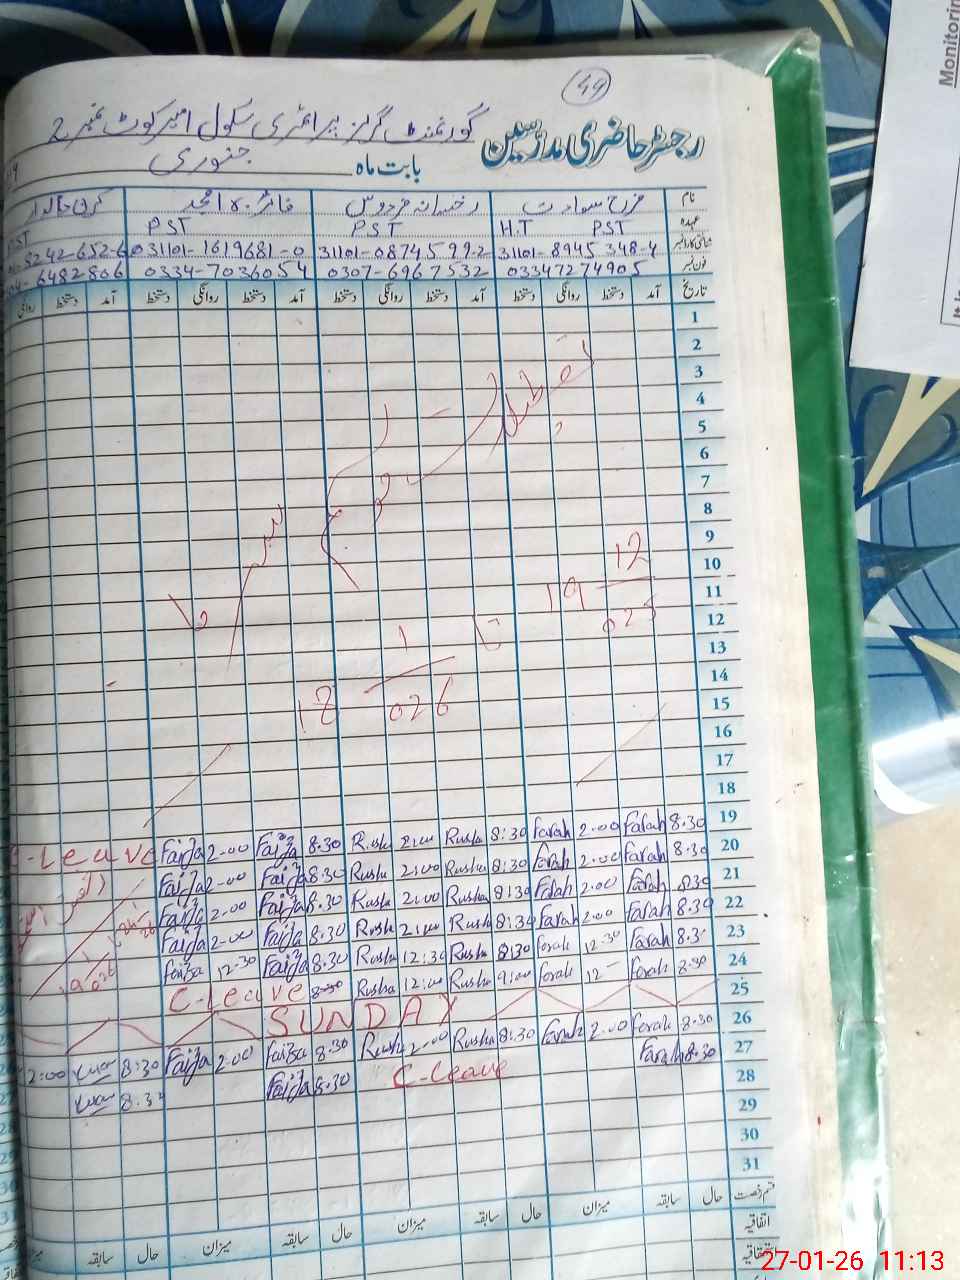 49
رجسٹر حاضری مدرسین گورنمنٹ گرلز پرائمری سکول امیر کوٹ نمبر 2
بابت ماہ جنوری
نام فرح سعادت رخسانہ فردوس فائزہ امجد
عہدہ PST H.T PST PST
شناختی کارڈ نمبر 31101-8945348-4 31101-0874599-2 31101-1619681-0
فون نمبر 03347274905 0307-6967532 0334-7036054 6482806
تاریخ آمد دستخط روانگی دستخط آمد دستخط روانگی دستخط آمد دستخط روانگی دستخط آمد دستخط
1
2
3
4
5
6
7
8
9
10
11
12
13
14
15
16
17
18
تعطیلات موسم سرما
19 12 025 تا 18 1 026
19
C-Leave Faiza 2-00 Faiza 8.30 Rusha 2:00 Rusha 8:30 Farah 2.00 Farah 8.30 20
Faiza 2-00 Faiza 8.30 Rusha 2:00 Rusha 8:30 Farah 2.00 Farah 8.30 21
Faiza 2-00 Faiza 8.30 Rusha 2:00 Rusha 8:30 Farah 2.00 Farah 830 22
Faiza 2-00 Faiza 8.30 Rusha 2:00 Rusha 8:30 Farah 2.00 Farah 8.30 23
Faiza 12-30 Faiza 8.30 Rusha 12:30 Rusha 8:30 Farah 12-30 Farah 8.3 24
C-Leave 8-30 Rusha 12:00 Rusha 9:00 Farah 12- Farah 8.30 25
SUNDAY 26
2:00 8:30 Faiza 2.00 Faiza 8.30 Rusha 2.00 Rusha 8:30 Farah 2.00 Farah 8.30 27
8.3 Faiza 8.30 C-Leave Farah 8.30 28
29
30
31
قسم رخصت حال سابقہ میزان حال سابقہ میزان حال سابقہ میزان حال سابقہ
اتفاقیہ
استحقاقیہ
Monitoring
27-01-26 11:13